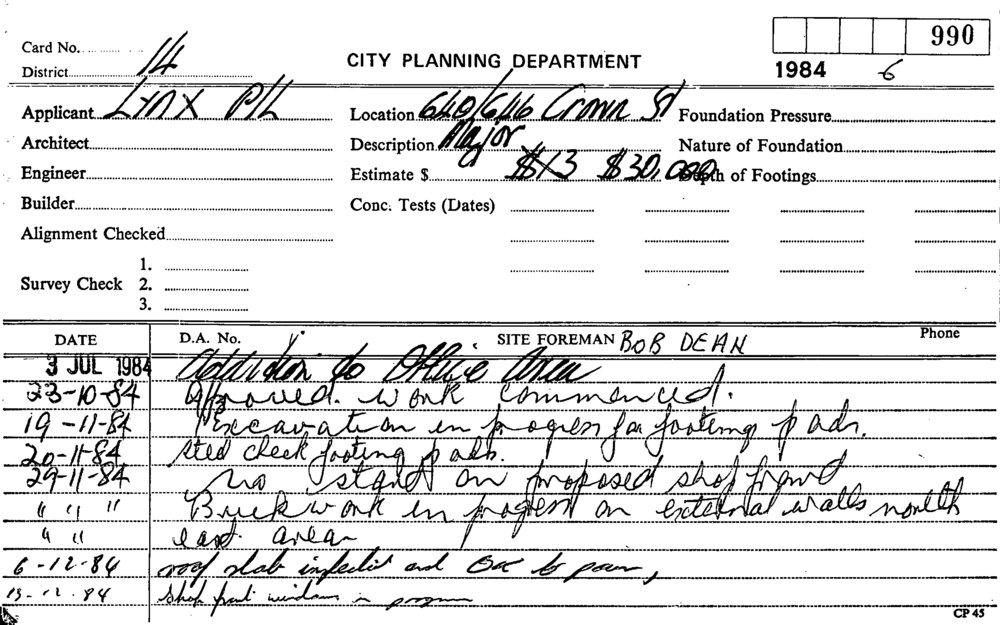 990
Card No. 14
CITY PLANNING DEPARTMENT
1984 6
District
Applicant Lynx P/L
Location 640/646 Crown St
Foundation Pressure
Architect
Description Major
Nature of Foundation
Engineer
Estimate $ $13 $30,000
Depth of Footings
Builder
Conc. Tests (Dates)
Alignment Checked
Survey Check 1.
2.
3.
DATE D.A. No. SITE FOREMAN BOB DEAN Phone
3 JUL 1984 Addition to Office Area
23-10-84 Approved. work commenced.
19-11-84 Excavation in progress for footing pads.
20-11-84 steel check footing pads.
29-11-84 no start on proposed shop front
" " " Brickwork in progress on external walls north
" " east area
6-12-84 roof slab inspected and OK to pour,
13-12-84 Shop front windows in progress
CP 45